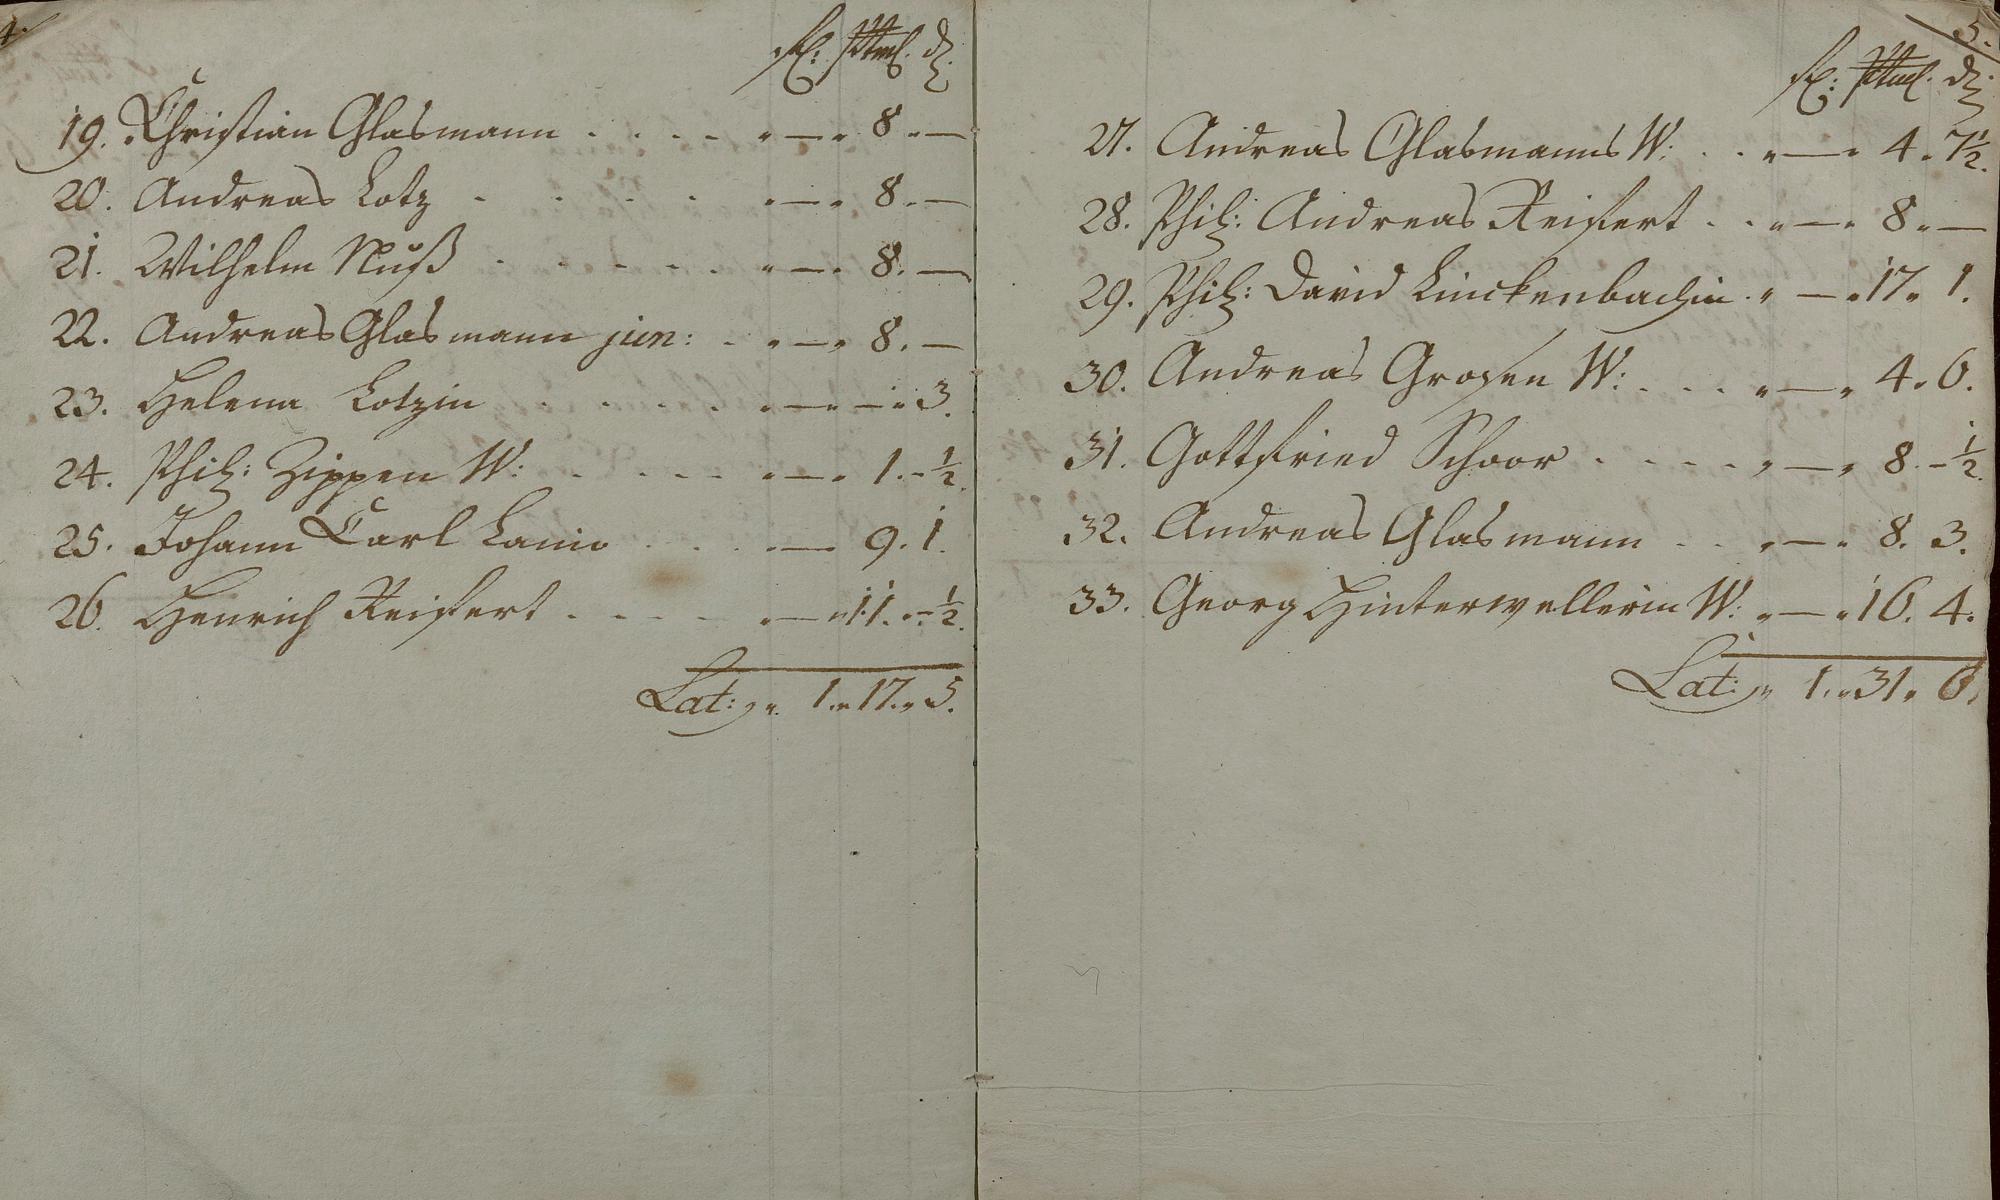 4.
fl: Kr. d.
19. Christian Glasmann . . . . " — " 8 . —
20. Andreas Lotz . . . . " — " 8 . —
21. Wilhelm Nuß . . . . . " — . 8. —
22. Andreas Glasmann jun: . " — " 8. —
23. Helena Lotzin . . . . " — " — " 3.
24. Phil: Zippen W: . . . . " — " 1. - ½.
25. Johann Carl Lanio . . . " — 9. 1.
26. Henrich Reifert . . . . " — " 11. " - ½.
Lat: " 1. " 17. " 5.
5.
fl: d.
27. Andreas Glasmanns W: . . " — " 4 . 7½.
28. Phil: Andreas Reifert . . " — " 8 " —
29. Phil: David Linckenbachin . " — " 17 " 1.
30. Andreas Grosen W: . . . " — " 4 " 6.
31. Gottfried Schoor . . . . " — " 8. - ½.
32. Andreas Glasmann . . " — " 8. 3.
33. Georg Hinterwellerin W: " — " 16. 4.
Lat: " 1. " 31 " 6.